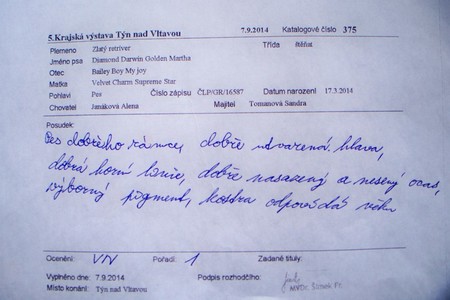 5.Krajská výstava Týn nad Vltavou 7.9.2014 Katalogové číslo 375
Plemeno Zlatý retriver Třída štěňat
Jméno psa Diamond Darwin Golden Martha
Otec Bailey Boy My joy
Matka Velvet Charm Supreme Star
Pohlaví Pes Číslo zápisu ČLP/GR/16587 Datum narození 17.3.2014
Chovatel Janáková Alena Majitel Tomanová Sandra
Posudek:
Pes dobrého rámce, dobře utvářená hlava,
dobrá horní linie, dobře nasazený a nesený ocas,
výborný pigment, kostra odpovídá věku
Ocenění: VN Pořadí: 1 Zadané tituly:
Vyplněno dne: 7.9.2014 Podpis rozhodčího:
Místo konání: Týn nad Vltavou MVDr.